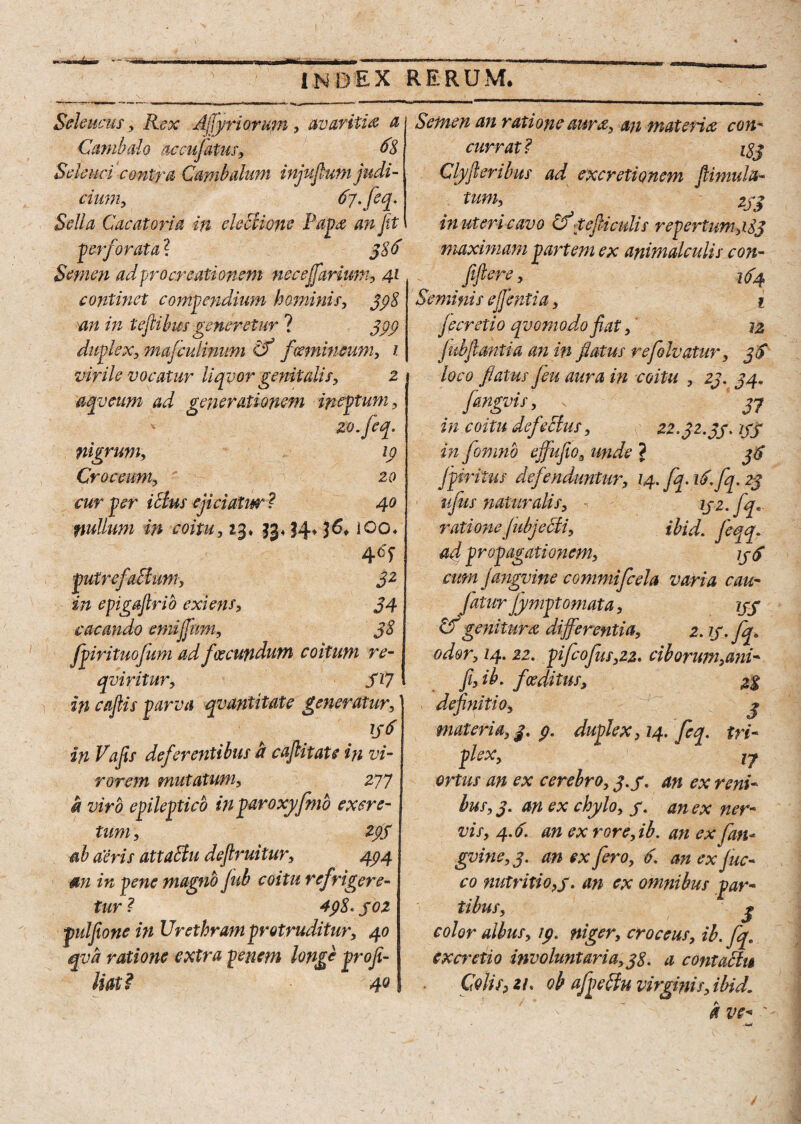 INDEX RERUM.
Seleucus, Rex Assyriorum, avaritiæ a
Cambalo accusatus, 68
Seleuci contra Cambalum injustum judi-
cium, 67. seq.
Sella Cacatoria in electione Papæ an sit
perforata? 386
Semen ad procreationem necessarium, 41
continet compendium hominis, 398
an in testibus generetur? 399
duplex, masculinum & fœmineum, 1
virile vocatur liqvor genitalis, 2
aqveum ad generationem ineptum,
20. seq.
nigrum, 19
Croceum, 20
cur per ictus ejiciatur? 40
nullum in coitu, 23. 33. 34. 36. 100.
465
putrefactum, 32
in epigastrio exiens, 34
cacando emissum, 38
spirituosum ad fœcundum coitum re-
qviritur, 517
in castis parva qvantitate generatur,
156
in Vasis deferentibus à castitate in vi-
rorem mutatum, 277
à viro epileptico in paroxysmo excre-
tum, 295
ab aëris attactu destruitur, 494
an in pene magno sub coitu refrigere-
tur? 498. 502
pulsione in Urethram protruditur, 40
qvâ ratione extra penem longè prosi-
liat? 40
Semen an ratione auræ, an materiæ con-
currat? 183
Clysteribus ad excretionem stimula-
tum, 253
in uteri cavo & testiculis repertum, 183
maximam partem ex animalculis con-
sistere, 164
Seminis essentia, 1
secretio qvomodo fiat, 12
substantia an in flatus resolvatur, 36
loco flatus seu aura in coitu, 23. 34.
sangvis, 37
in coitu defectus, 22. 32. 35. 155
in somno effusio, unde? 36
spiritus defenduntur, 14. sq. 16. sq. 23
usus naturalis, 152. sq.
ratione subjecti, ibid. seqq.
ad propagationem, 156
cum sangvine commiscela varia cau-
satur symptomata, 155
& genituræ differentia, 2. 15. sq.
odor, 14. 22. piscosus, 22. ciborum, ani-
si, ib. fœditus, 28
definitio, 3
materia, 3. 9. duplex, 14. seq. tri-
plex, 17
ortus an ex cerebro, 3. 5. an ex reni-
bus, 3. an ex chylo, 5. an ex ner-
vis, 4. 6. an ex rore, ib. an ex san-
gvine, 3. an ex sero, 6. an ex suc-
co nutritio, 5. an ex omnibus par-
tibus, 3
color albus, 19. niger, croceus, ib. sq.
excretio involuntaria, 38. a contactu
Colis, 21. ob aspectu virginis, ibid.
à ve-